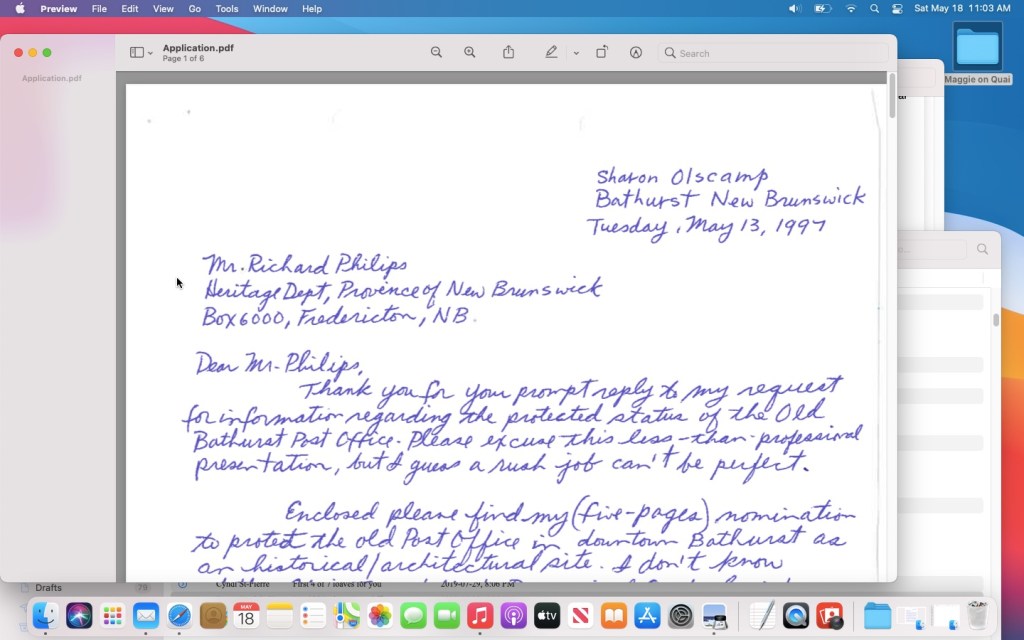 Preview File Edit View Go Tools Window Help
Sat May 18 11:03 AM
Application.pdf
Page 1 of 6
Search
Application.pdf
Maggie on Quai
Sharon Olscamp
Bathurst New Brunswick
Tuesday, May 13, 1997
Mr. Richard Philips
Heritage Dept, Province of New Brunswick
Box 6000, Fredericton, NB.
Dear Mr. Philips,
Thank you for your prompt reply to my request
for information regarding the protected status of the Old
Bathurst Post Office. Please excuse this less-than-professional
presentation, but I guess a rush job can't be perfect.
Enclosed please find my (five-pages) nomination
to protect the old Post Office in downtown Bathurst as
an historical/architectural site. I don't know
Drafts
79
Cyndi St-Pierre
2019-07-29, 8:06 PM
MAY
18
tv